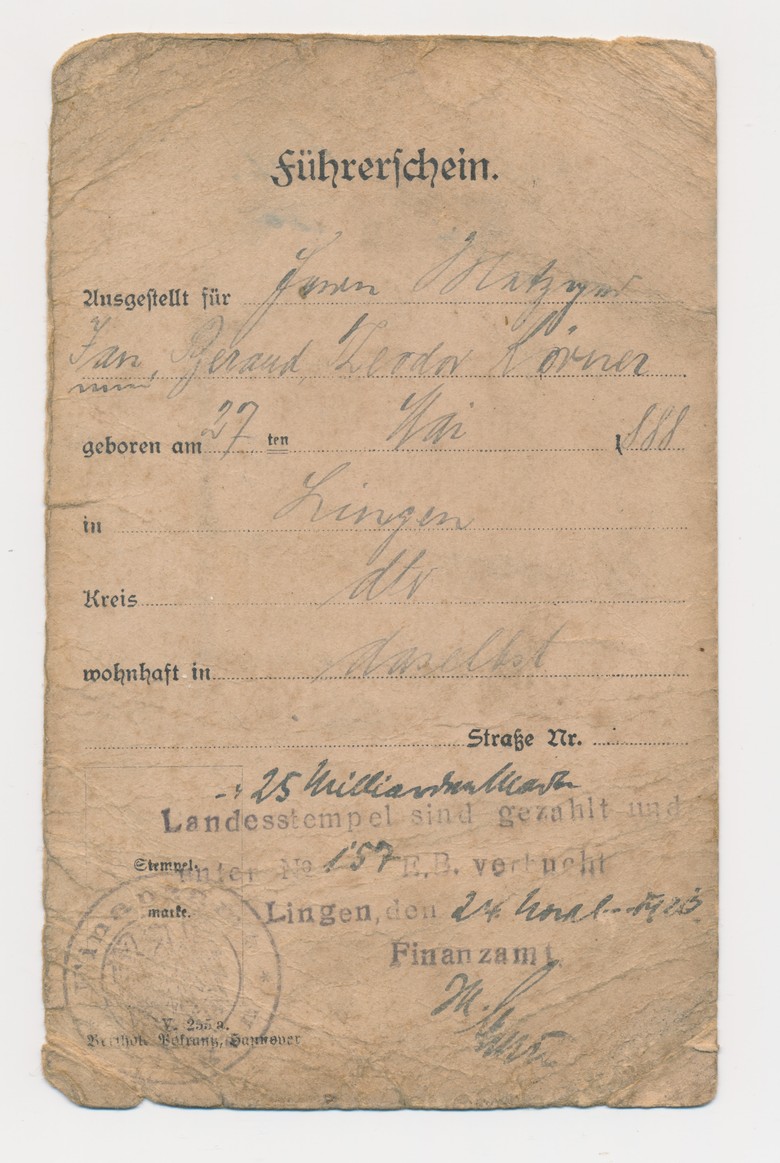 Führerschein.
Ausgestellt für Herrn Metzger
Jan, Berand, Teodor Körner
geboren am 27 ten Mai 1888
in Lingen
Kreis dto
wohnhaft in daselbst
Straße Nr.
25 Milliarden Mark
Landesstempel sind gezahlt und
unter No 157 E.B. verbucht
Stempel-
marke.
Lingen, den 24. Novbr. 1923
Finanzamt
Finanzamt
V. 255a.
Berthold Pokrantz, Hannover